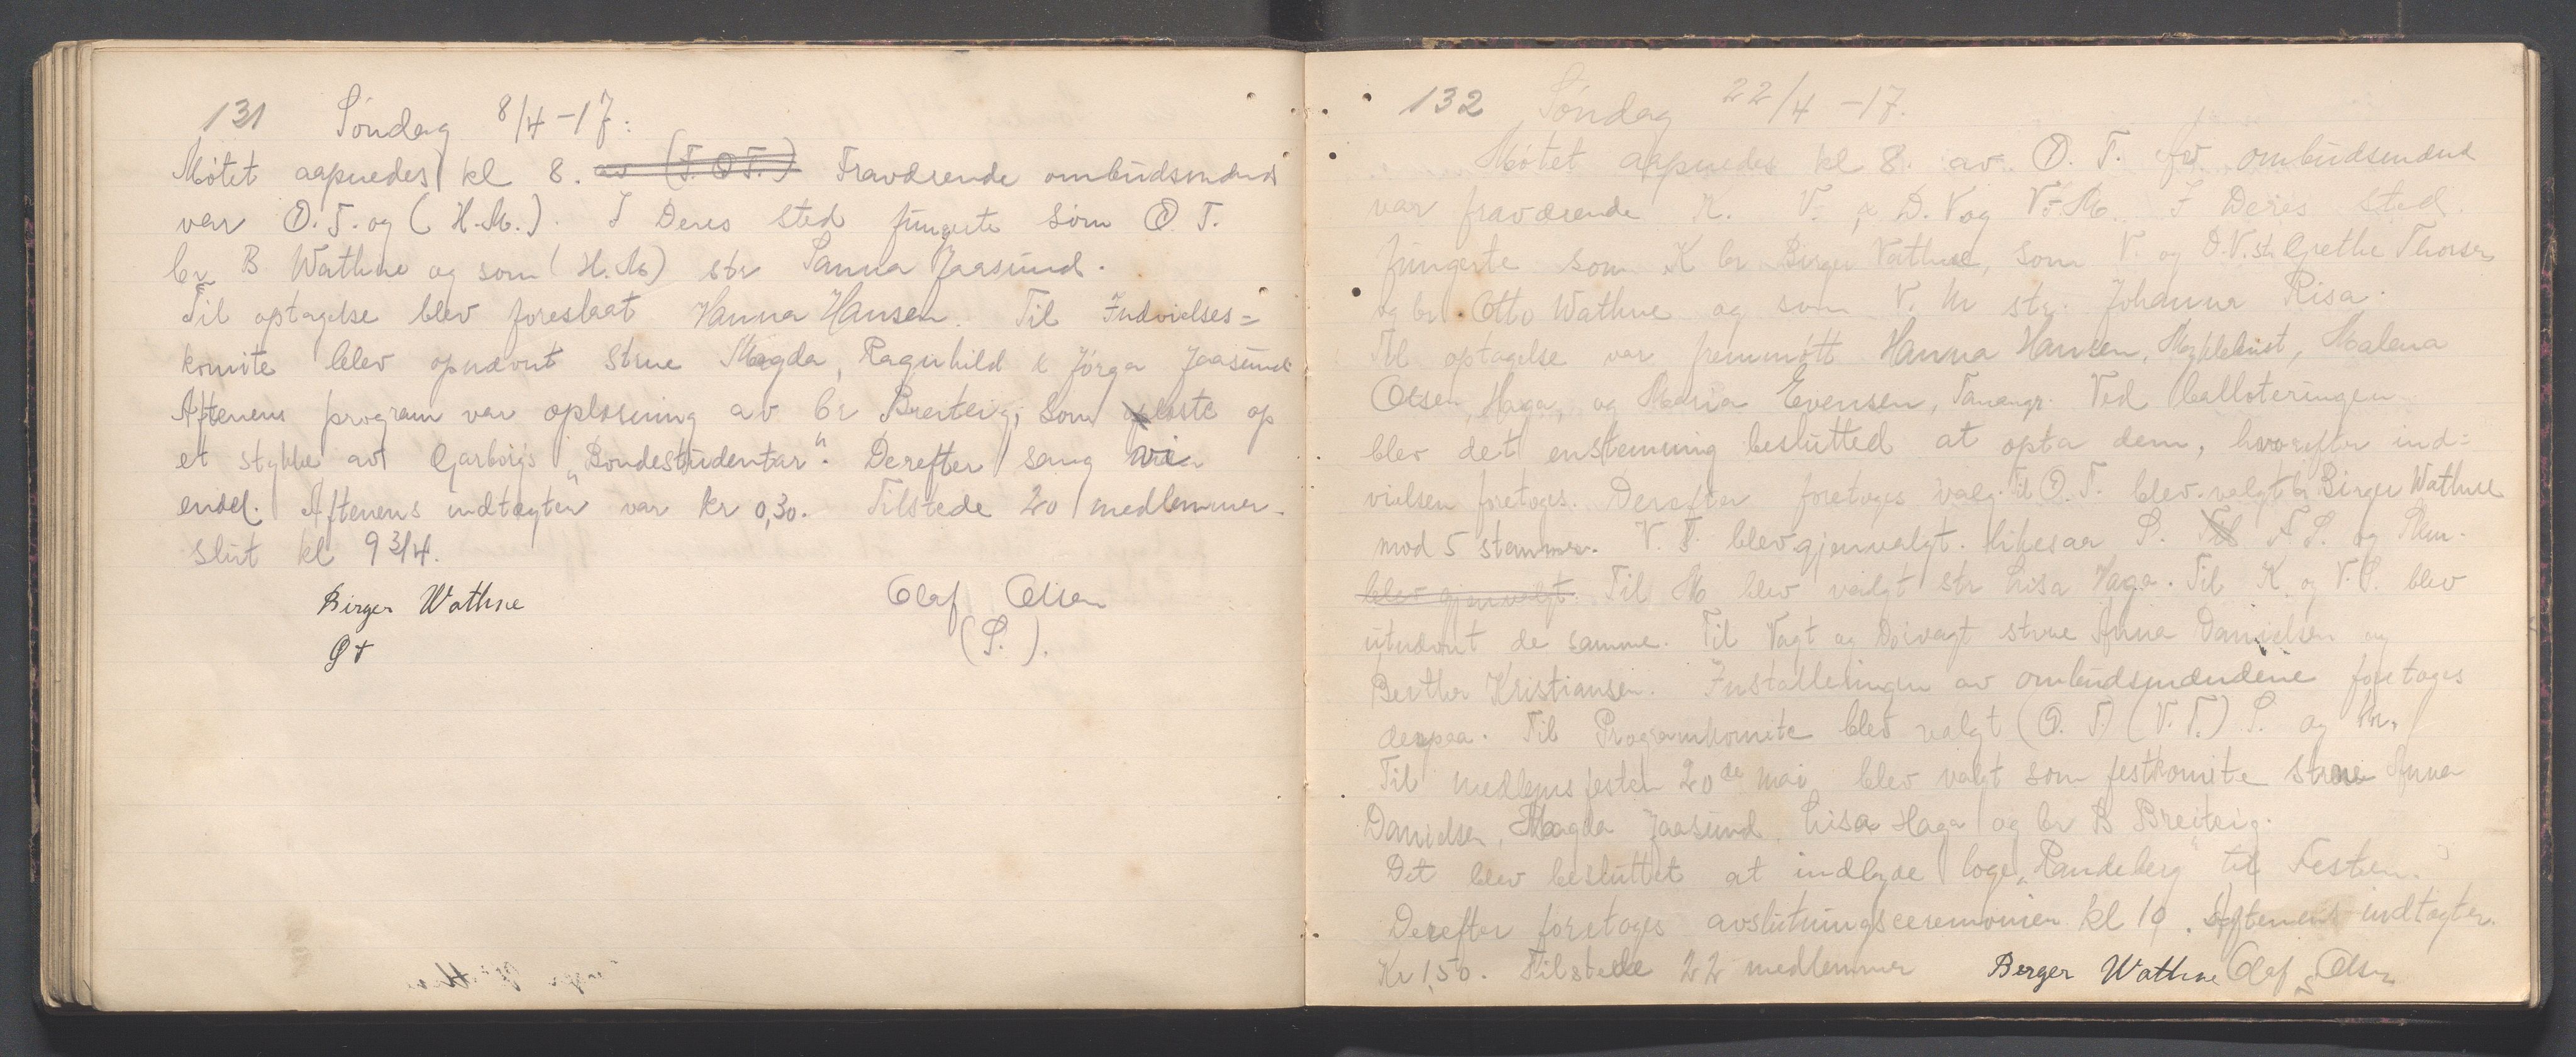 131 Söndag 8/4-17:
Mötet aapnedes kl 8. av (F. O T.) Fraværende ombudsmænd
var O. T. og (H.M.). I Deres sted fungerte som O T.
br B Wathne og som (H.M) str Sanna Jaasund.
Til optagelse blev foreslaat Hanna Hansen. Til Indvielses=
komite blev opnævnt strne Magda, Ragnhild & Jórga Jaasund
Aftenens program var oplæsning av br Breiteig, som læste op
et stykke av Garborgs "Bondestudentar". Derefter sang vi
endel. Aftenens indtægter var kr 0,30. Tilstede 20 medlemmer.
Slut kl 9 3/4.
Birger Wathne Olaf Olsen
OT (S.).
132 Söndag 22/4-17.
Mötet aapnedes kl 8. av O. T. Av ombudsmænd
var fraværende K. V. D.V og V.M. I Deres sted
fungerte som K br Birger Vathne, som V. og D.V. str Grethe Thorsen
og br. Otto Wathne og som V. M str. Johanne Risa.
Til optagelse var fremmött Hanna Hansen, Myklebust, Malena
Olsen, Haga, og Maria Evensen, Tananger. Ved balloteringen
blev det enstemmig beslutted at opta dem, hvorefter ind=
vielsen foretoges. Derefter foretoges valg. Til O. T. blev valgt br Birger Wathne
mod 5 stemmer. V. T. blev gjenvalgt. likesaa S. Til F. S. og
blev gjenvalgt. Til M blev valgt str Lisa Haga. Til K og V.S. blev
utnævnt de samme. Til Vagt og Doivagt strne Anna Danielsen og
Bertha Kristiansen. Installeringen av ombudsmændene foretoges
derpaa. Til Programkomite blev valgt (O. T.) (V. T.) S. og
Til medlemsfesten 20de mai blev valgt som festkomite strne Anna
Danielsen, Magda Jaasund Lisa Haga og br B Breiteig.
Det blev besluttet at indbyde loge "Randeberg" til Festen.
Derefter foretoges avslutningsceremonien kl 10. Aftenens indtægter
Kr 1,50. Tilstede 22 medlemmer Berger Wathne Olaf Olsen
S